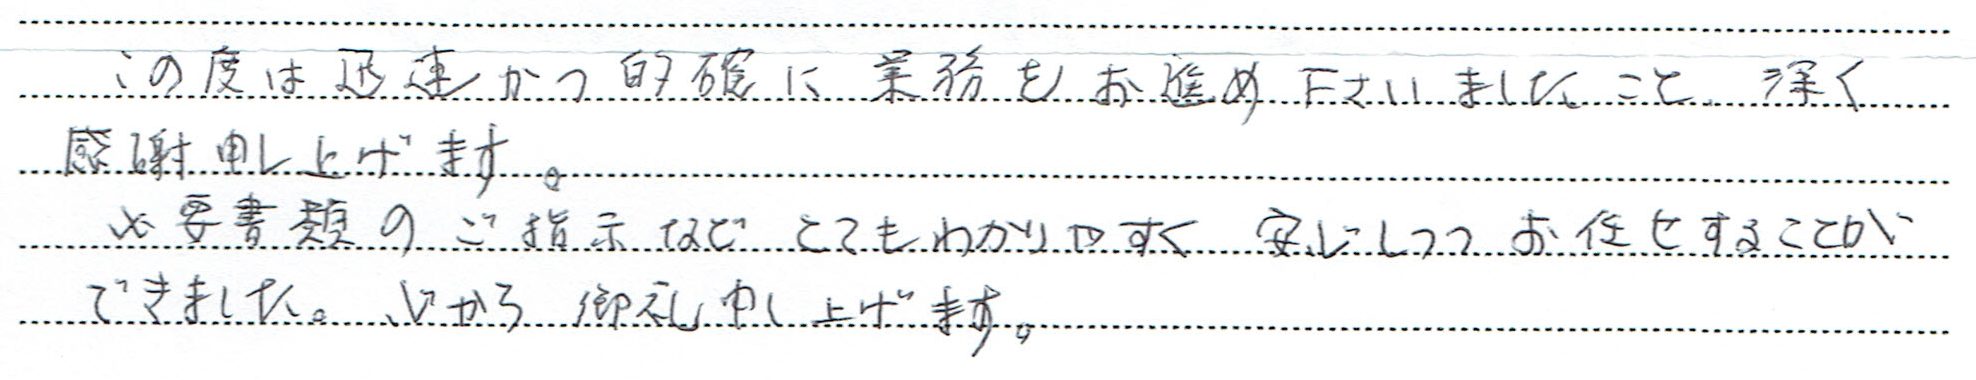 この度は迅速かつ的確に業務をお進め下さいましたこと、深く
感謝申し上げます。
必要書類のご指示などとてもわかりやすく安心しつつお任せすることが
できました。心から御礼申し上げます。